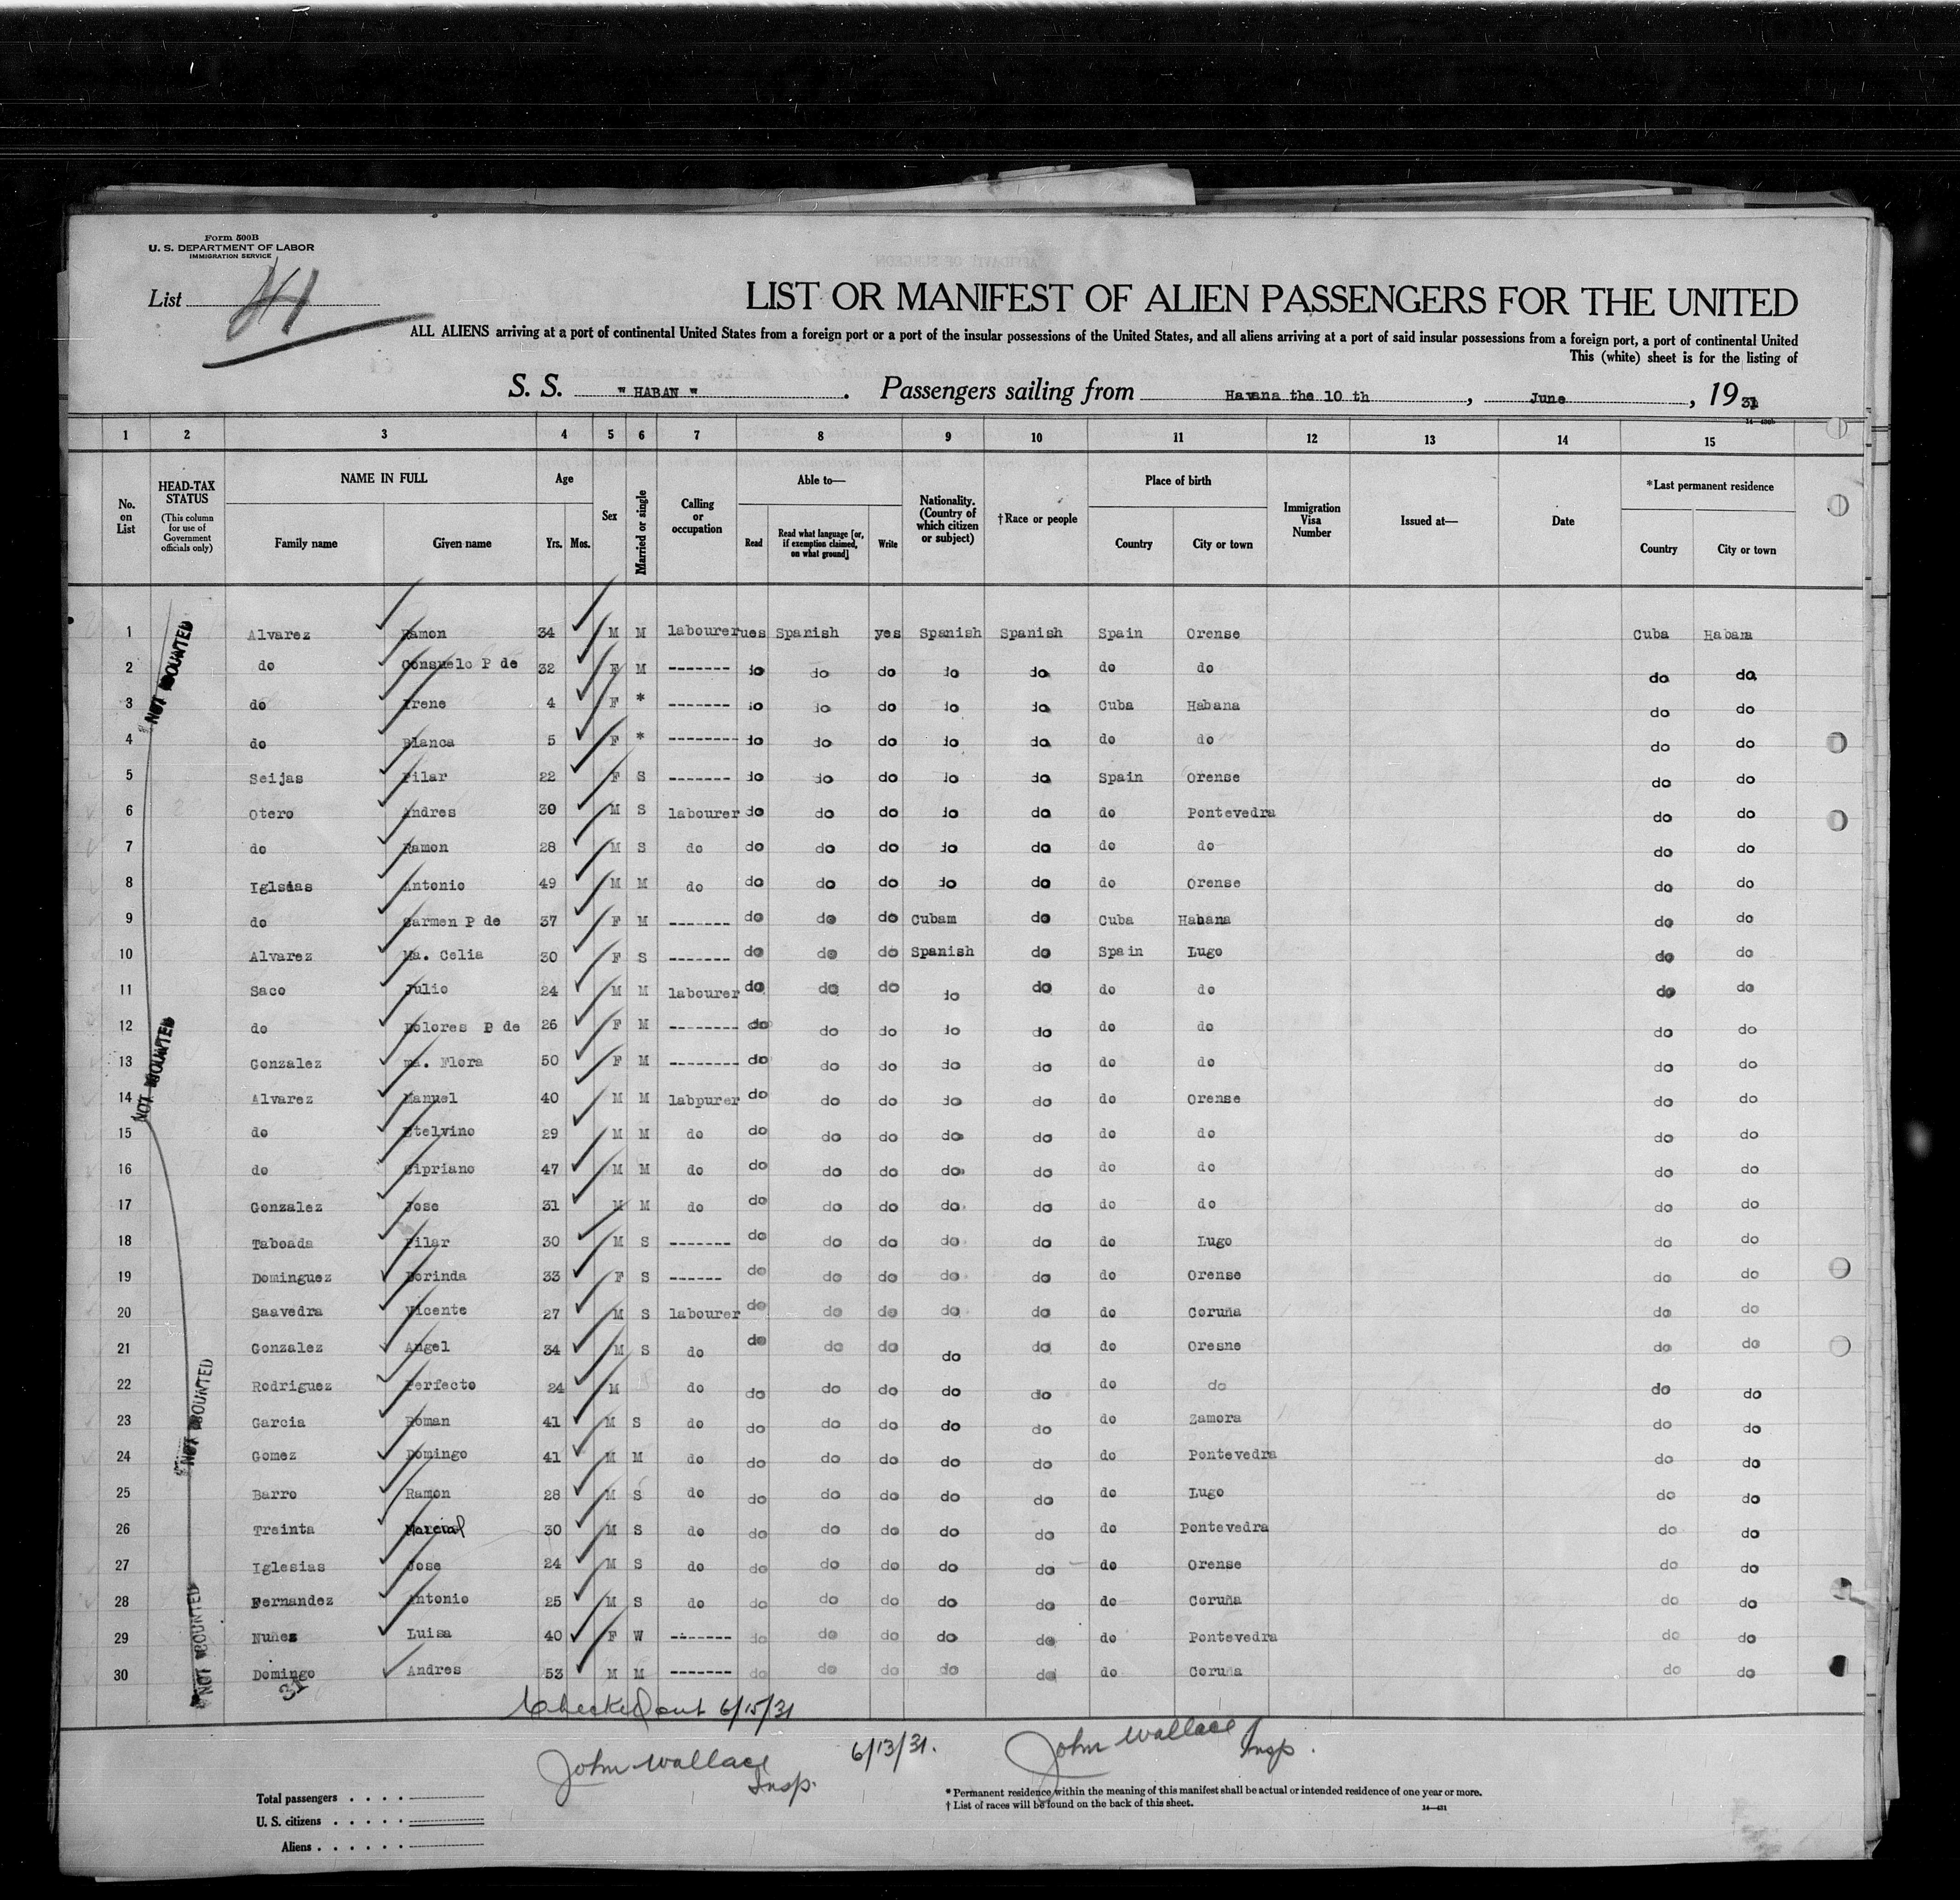 Form 500B
U. S. DEPARTMENT OF LABOR
IMMIGRATION SERVICE
List
LIST OR MANIFEST OF ALIEN PASSENGERS FOR THE UNITED
ALL ALIENS arriving at a port of continental United States from a foreign port or a port of the insular possessions of the United States, and all aliens arriving at a port of said insular possessions from a foreign port, a port of continental United
This (white) sheet is for the listing of
S. S. " HABAN " . Passengers sailing from Havana the 10 th , June , 19 31
1 2 3 4 5 6 7 8 9 10 11 12 13 14 15
No. on List
HEAD-TAX STATUS (This column for use of Government officials only)
NAME IN FULL
Family name Given name
Age
Yrs. Mos.
Sex
Married or single
Calling or occupation
Able to—
Read Read what language [or, if exemption claimed, on what ground] Write
Nationality. (Country of which citizen or subject)
†Race or people
Place of birth
Country City or town
Immigration Visa Number
Issued at—
Date
*Last permanent residence
Country City or town
1 Alvarez Ramon 34 M M labourer ues Spanish yes Spanish Spanish Spain Orense Cuba Habana
2 do Consuelo P de 32 F M ------- do do do do do do do do do
3 do Irene 4 F * ------- do do do do do Cuba Habana do do
4 do Blanca 5 F * -------- do do do do do do do do do
5 Seijas Pilar 22 F S ------- do do do do do Spain Orense do do
6 Otero Andres 30 M S labourer do do do do do do Pontevedra do do
7 do Ramon 28 M S do do do do do do do do do do
8 Iglsias Antonio 49 M M do do do do do do do Orense do do
9 do Carmen P de 37 F M ------- do do do Cubam do Cuba Habana do do
10 Alvarez Ma. Celia 30 F S ------- do do do Spanish do Spain Lugo do do
11 Saco Julio 24 M M labourer do do do do do do do do do
12 do Dolores P de 26 F M -------- do do do do do do do do do
13 Gonzalez ma. Flora 50 F M -------- do do do do do do do do do
14 Alvarez Manuel 40 M M labpurer do do do do do do Orense do do
15 do Etelvino 29 M M do do do do do do do do do do
16 do Cipriano 47 M M do do do do do do do do do do
17 Gonzalez Jose 31 M M do do do do do do do do do do
18 Taboada Pilar 30 M S ------- do do do do do do Lugo do do
19 Dominguez Dorinda 33 F S ------ do do do do do do Orense do do
20 Saavedra Vicente 27 M S labourer do do do do do do Coruña do do
21 Gonzalez Angel 34 M S do do do do do do do Oresne do do
22 Rodriguez Perfecto 24 M do do do do do do do do do do
23 Garcia Roman 41 M S do do do do do do do Zamora do do
24 Gomez Domingo 41 M M do do do do do do do Pontevedra do do
25 Barro Ramon 28 M S do do do do do do do Lugo do do
26 Treinta Marcial 30 M S do do do do do do do Pontevedra do do
27 Iglesias Jose 24 M S do do do do do do do Orense do do
28 Fernandez Antonio 25 M S do do do do do do do Coruña do do
29 Nuñes Luisa 40 F W ------- do do do do do do Pontevedra do do
30 Domingo Andres 53 M M ------- do do do do do do Coruña do do
NOT COUNTED
NOT COUNTED
NOT COUNTED
NOT COUNTED
31
Checked out 6/15/31
John Wallace Insp.
6/13/31.
John Wallace Insp.
Total passengers . . . .
U. S. citizens . . . . .
Aliens . . . . . .
* Permanent residence within the meaning of this manifest shall be actual or intended residence of one year or more.
† List of races will be found on the back of this sheet.
14—431